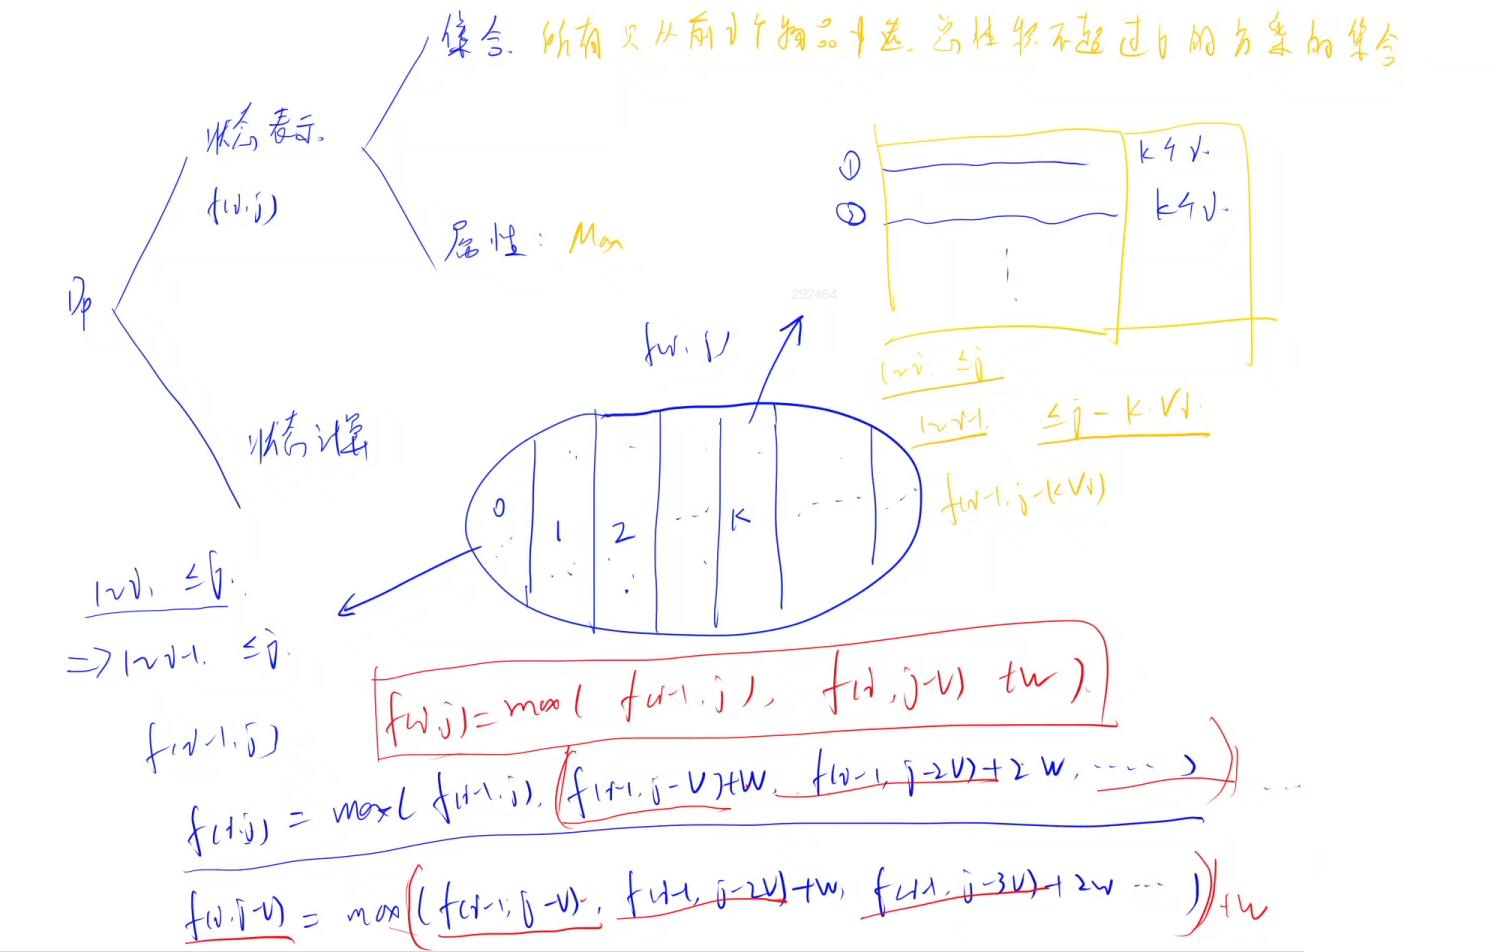 集合. 所有只从前i个物品中选, 总体积不超过j的方案的集合
状态表示.
f(i,j)
属性: Max
DP
状态计算
① k个i.
② k个i.
292464
f(i,j)
1~i. ≤j
1~i-1. ≤j-k.Vi.
f(i-1,j-kVi)
0 1 2 ... k ......
1~i. ≤j.
=> 1~i-1. ≤j.
f(i-1,j)
f(i,j)=max( f(i-1,j), f(i,j-V) +W ).
f(i,j) = max( f(i-1,j), f(i-1,j-V)+W, f(i-1,j-2V)+2W, ..... ) ...
f(i,j-V) = max( f(i-1,j-V), f(i-1,j-2V)+W, f(i-1,j-3V)+2W ... ) +W